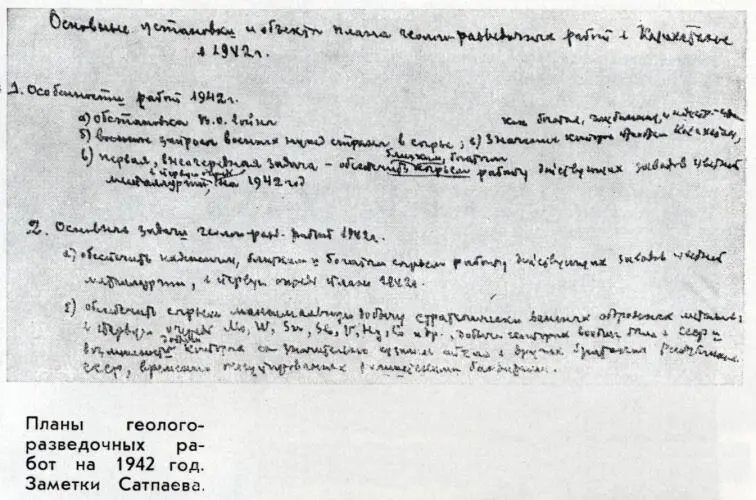 Основные установки и объекты плана геолого-разведочных работ в Казахстане
в 1942 г.
1. Особенности работ 1942 г.
а) обстановка В.О. войны
б) военные запросы военных нужд страны в сырье; в) Значение которое Казахстан,
в) первая, внеочередная задача – обеспечить близким, богатым сырьем работу действующих заводов цветной
металлургии, в первую очередь на 1942 год
2. Основные задачи геолого-разв. работ 1942 г.
а) обеспечить надежным, близким и богатым сырьем работу действующих заводов цветной
металлургии, в первую очередь плана 1942 г.
б) обеспечить сырьем максимальную добычу стратегически важных оборонных металлов:
в первую очередь Mo, W, Sn, Sb, V, Hg, Co и др., добыча которых вообще была в СССР и
возможности добычи которых значительно в других братских Республиках
СССР, временно оккупированных фашистскими бандитами.
Планы геолого-
разведочных ра-
бот на 1942 год.
Заметки Сатпаева.